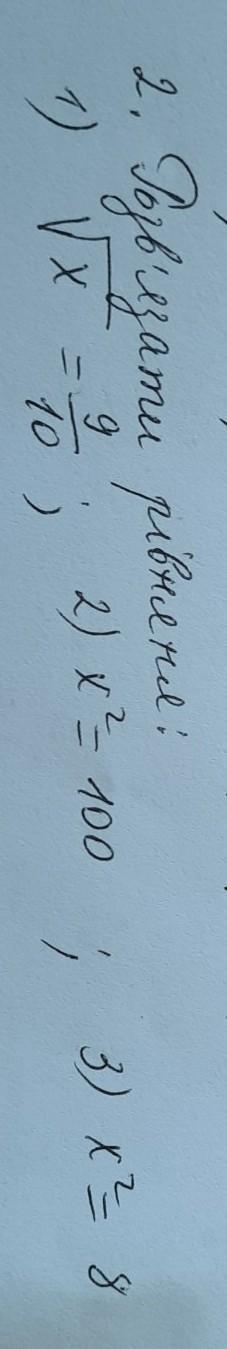 2. Розв'язати рівняння:
1) √x = 9/10 ; 2) x² = 100 ; 3) x² = 8